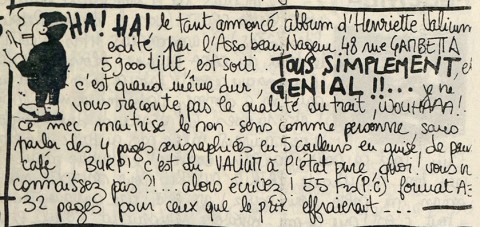 HA! HA! le tant annoncé album d'Henriette Valium
edité par l'Asso beau Nagem 48 rue GAMBETTA
59000 LILLE, est sorti. TOUS SIMPLEMENT, et
c'est quand même dur, GENIAL !!... je ne
vous raconte pas la qualité du trait, WOUHAAA!.
ce mec maitrise le non-sens comme personne sans
parler des 4 pages serigraphiées en 5 couleurs en guise, de
café BURP! c'est du VALIUM à l'état pure quoi! vous n
connaissez pas ?!... alors écrivez! 55 Frs(P.C) format A
32 pages pour ceux que le prix effraierait ---